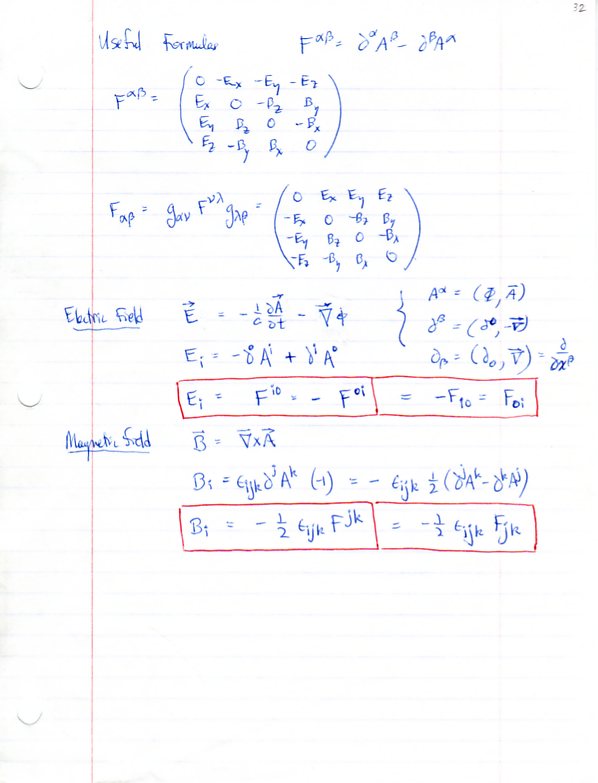 32
Useful Formulas F^{αβ} = ∂^α A^β - ∂^β A^α
F^{αβ} = ( 0 -Ex -Ey -Ez
Ex 0 -Bz By
Ey Bz 0 -Bx
Ez -By Bx 0 )
F_{αβ} = g_{αν} F^{νλ} g_{λβ} = ( 0 Ex Ey Ez
-Ex 0 -Bz By
-Ey Bz 0 -Bx
-Ez -By Bx 0 )
Electric Field E⃗ = -1/c ∂A⃗/∂t - ∇⃗ϕ { A^α = (Φ, A⃗)
∂^β = (∂^0, -∇⃗)
E_i = -∂^0 A^i + ∂^i A^0 ∂_β = (∂_0, ∇⃗) = ∂/∂x^β
E_i = F^{i0} = - F^{0i} = -F_{i0} = F_{0i}
Magnetic Field B⃗ = ∇⃗ x A⃗
B_i = ϵ_{ijk} ∂^j A^k (-1) = - ϵ_{ijk} 1/2 (∂^j A^k - ∂^k A^j)
B_i = - 1/2 ϵ_{ijk} F^{jk} = - 1/2 ϵ_{ijk} F_{jk}